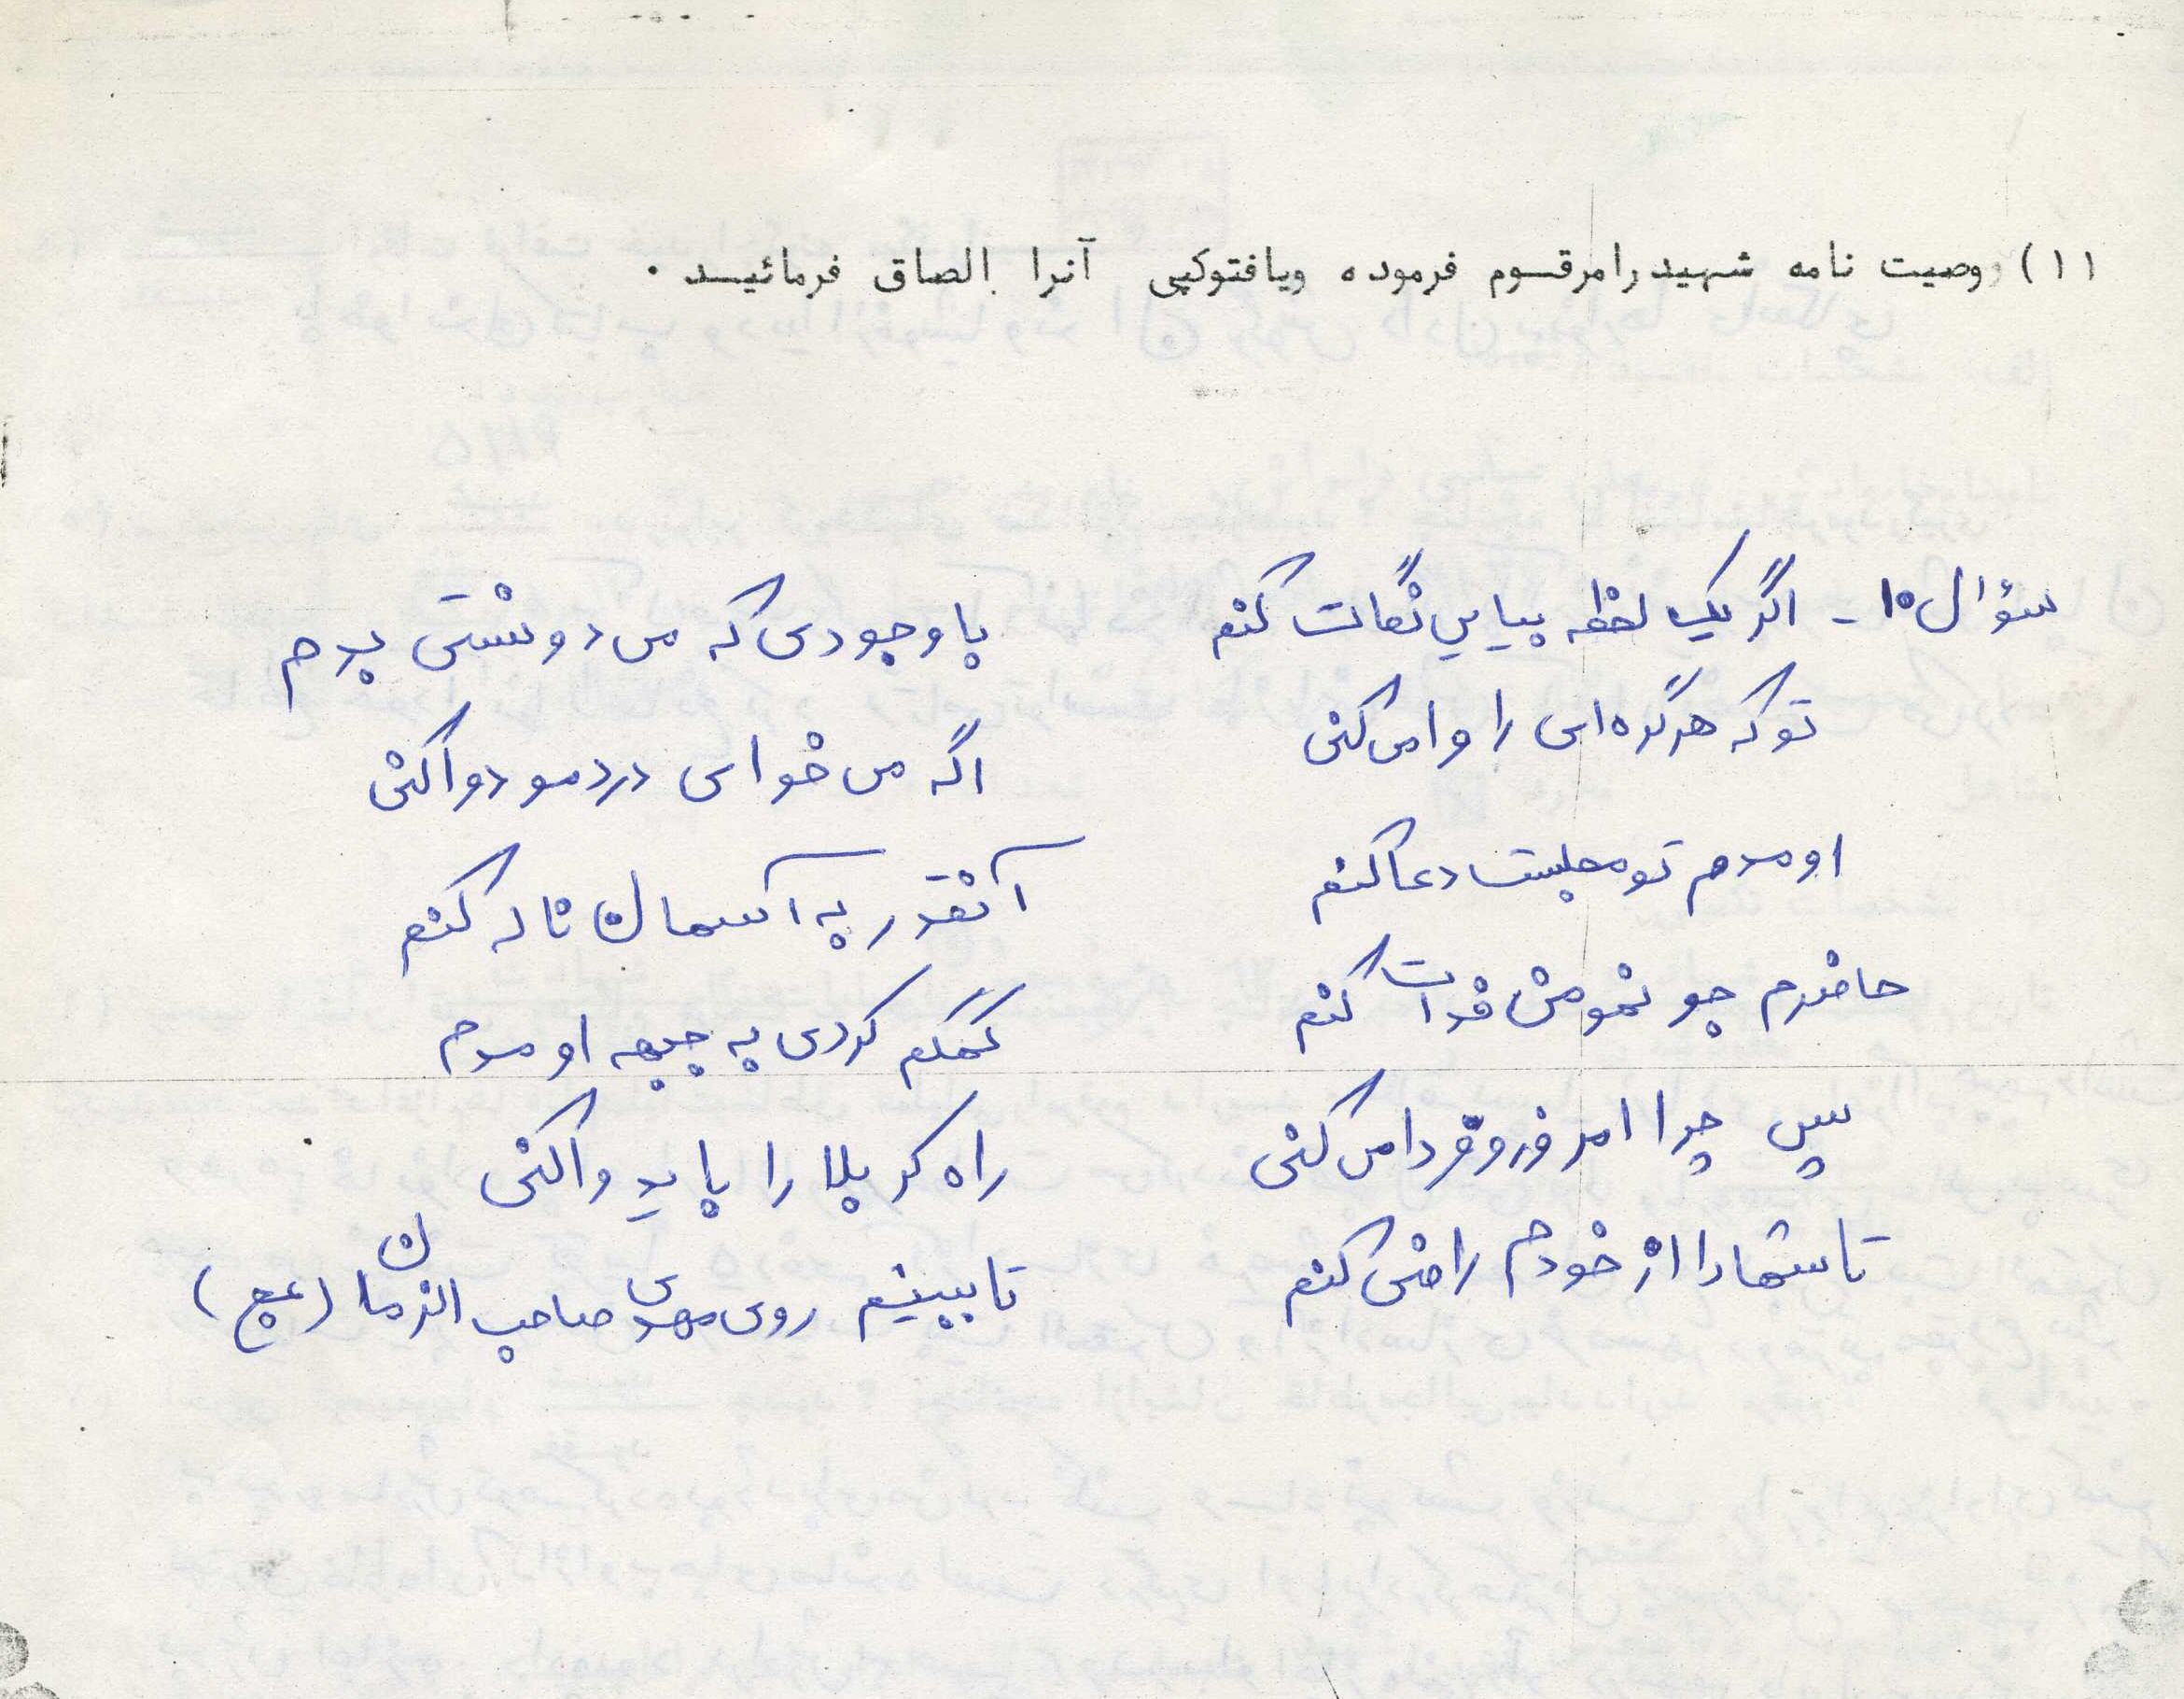 ۱۱) وصیت نامه شهید را مرقوم فرموده ویا فتوکپی آنرا الصاق فرمائید .
سؤال ۱۰ - اگر یک لحظه بیایی نگات کنم با وجودی که می دونستی بدم
تو که هر گره ای را وا می کنی اگه می خوای دردمو دوا کنی
اومدم تو مجلست دعا کنم آنقدر به آسمان ناله کنم
حاضرم جونمو من فدات کنم کمکم کردی به جبهه اومدم
پس چرا امروز و فردا می کنی راه کربلا را باید وا کنی
تا شما را از خودم راضی کنم تا ببینم روی مهدی صاحب الزمان (عج)